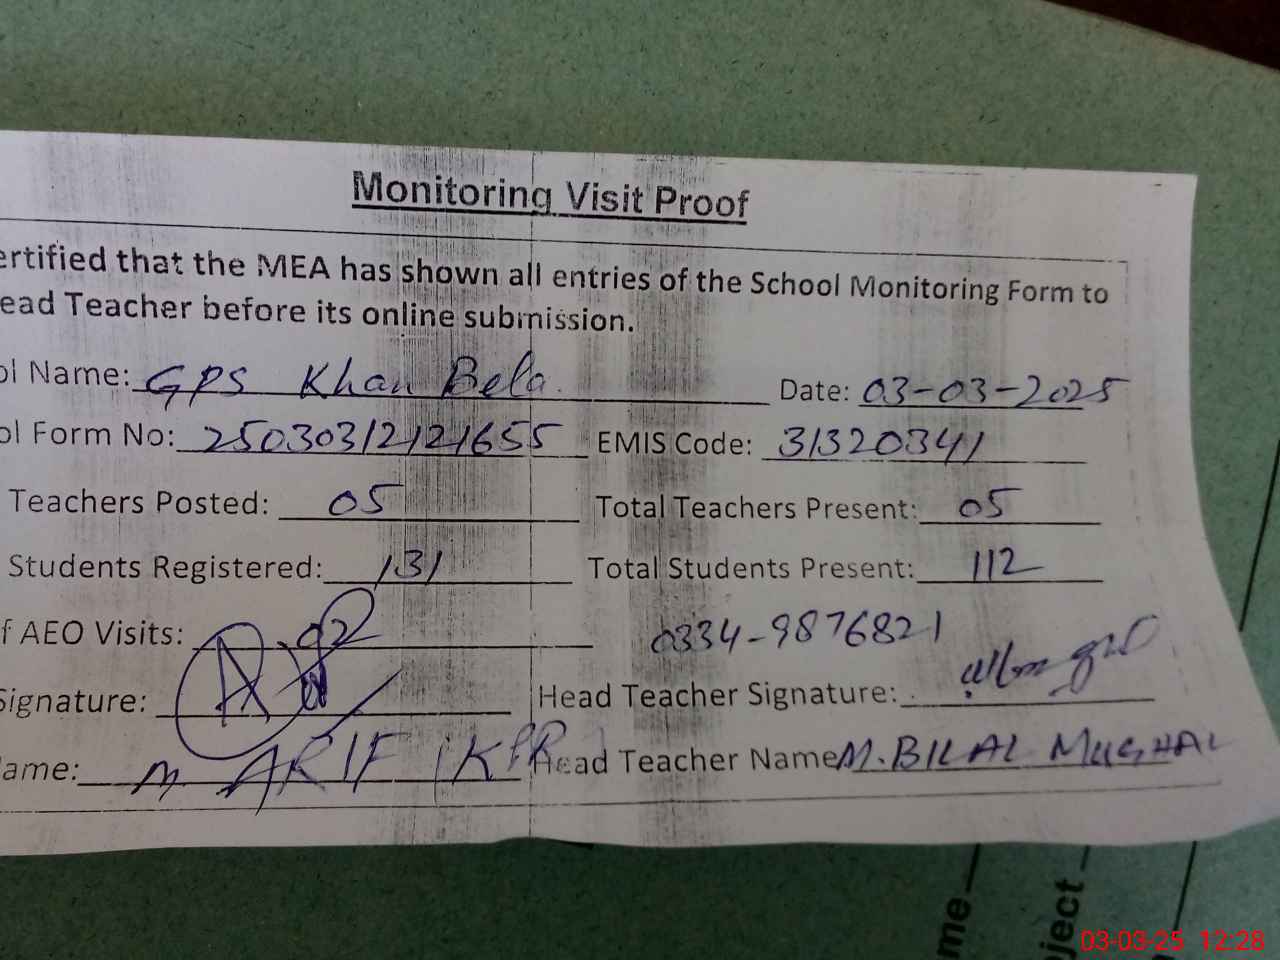 Monitoring Visit Proof
ertified that the MEA has shown all entries of the School Monitoring Form to
ead Teacher before its online submission.
ol Name: GPS Khan Bela Date: 03-03-2025
ol Form No: 25030312121655 EMIS Code: 31320341
Teachers Posted: 05 Total Teachers Present: 05
Students Registered: 131 Total Students Present: 112
f AEO Visits: 02 0334-9876821
Signature: Head Teacher Signature:
ame: M ARIF Head Teacher Name M. BILAL MUGHAL
me
ject
03-03-25 12:28